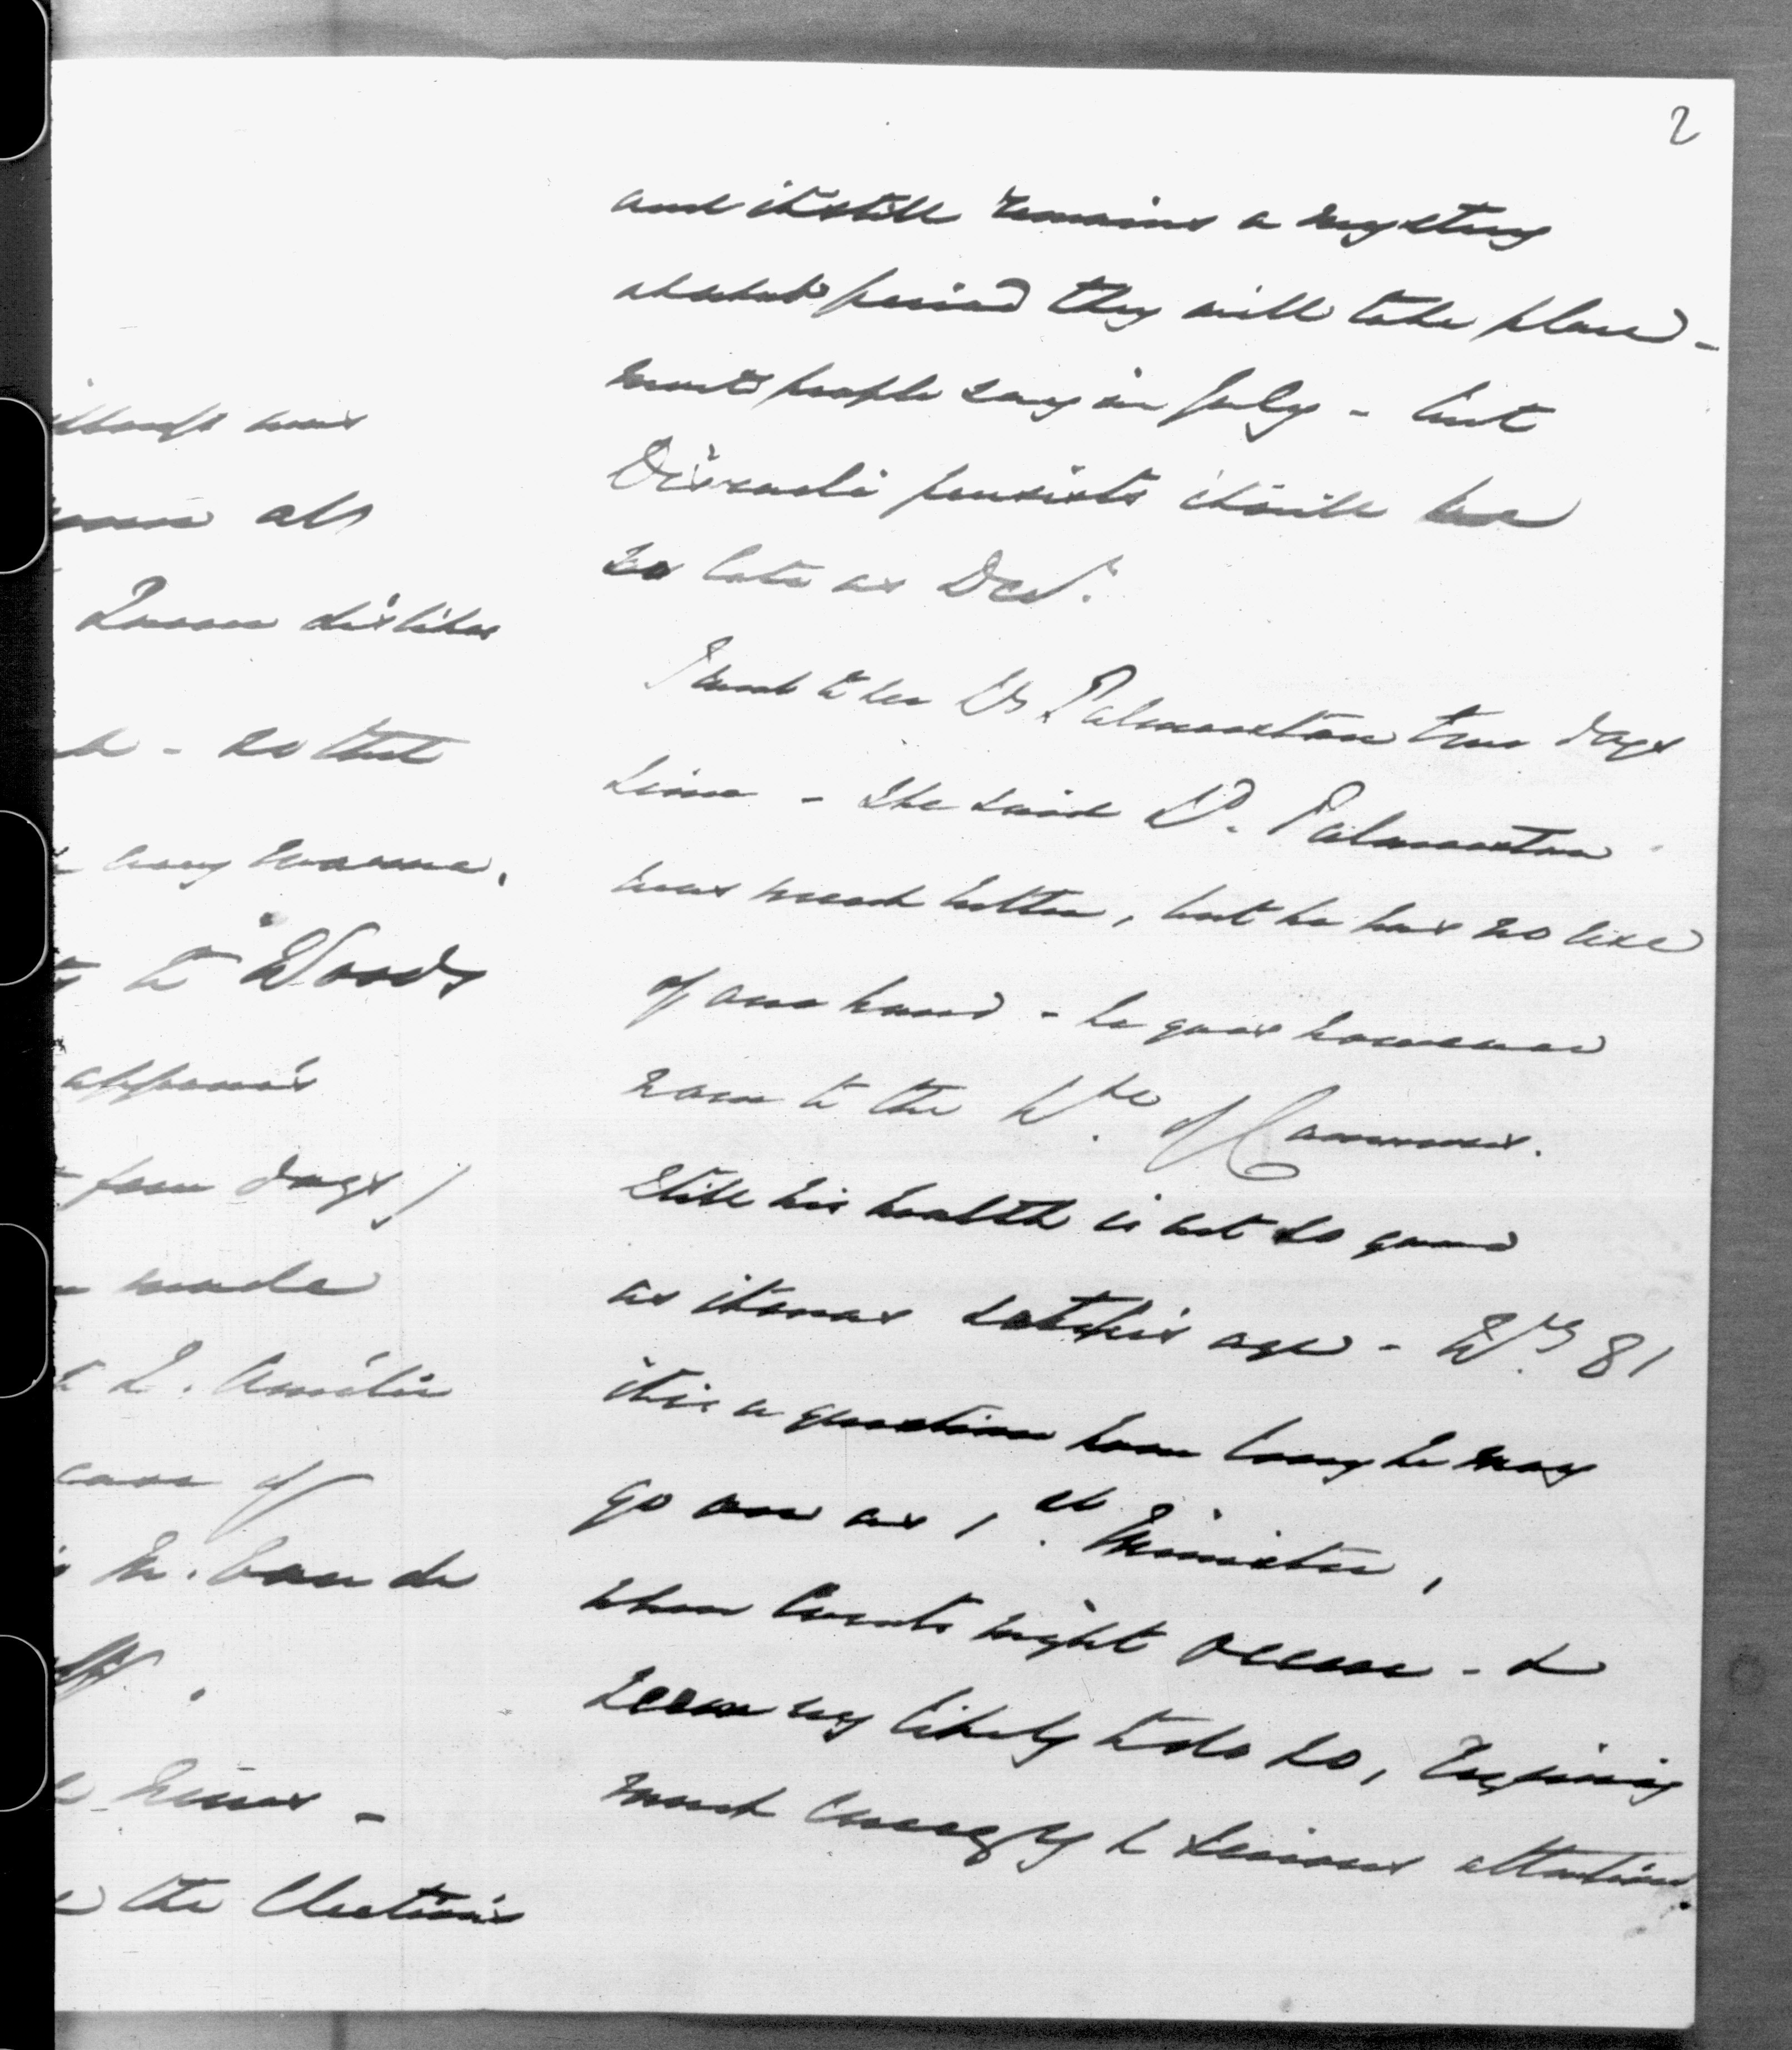 2
and it still remains a mystery
at what period they will take place -
most people say in July - but
Disraeli persists it will be
so late as Oct.
I went to see Ly Palmerston two days
since - She said Ld. Palmerston
was much better, but he has no use
of one hand - he goes however
now to the Hse of Commons.
Still his health is not so good
as it was & at his age - 81
it is a question how long he may
go on as 1st Minister,
when Events might occur - &
seem very likely to do so, requiring
much Energy & serious attention.
was
all
Queen dislikes
- so that
long
to Woods
appears
four days)
made
L. Amélie
case of
M. Van de
-
the Elections